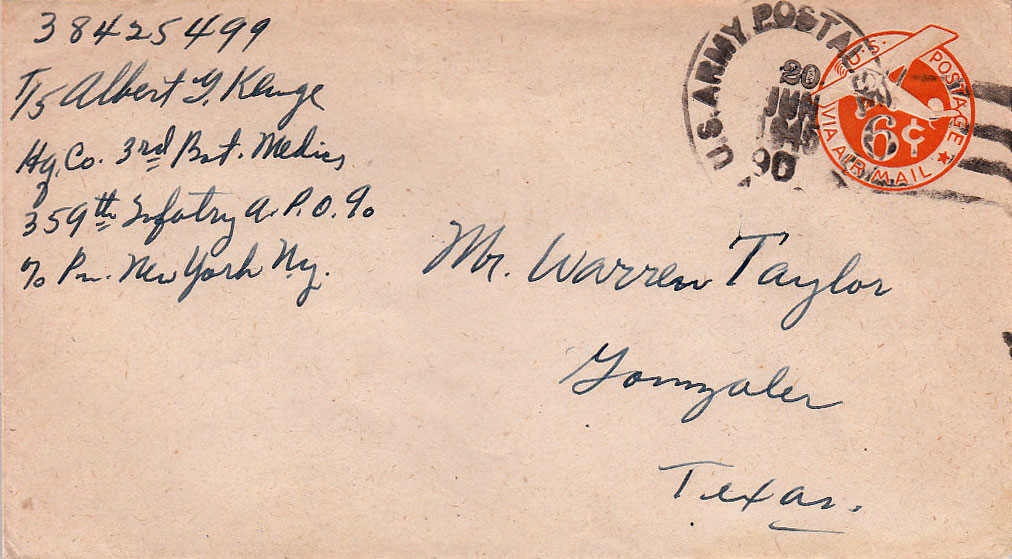 38425499
T/5 Albert G. Kenge
Hq. Co. 3rd Bat. Medics
359th Infatry A.P.O. 90
c/o Pm. New York Ny.
U.S. ARMY POSTAL
20
JUN
1945
90
U.S. POSTAGE
6¢
VIA AIR MAIL
Mr. Warren Taylor
Gonzales
Texas.